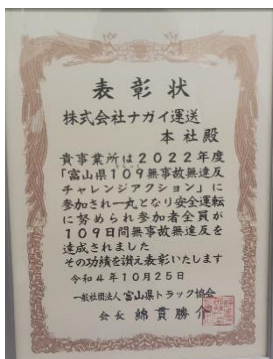 表彰状
株式会社ナガイ運送
本社殿
貴事業所は2022年度
「富山県109無事故無違反
チャレンジアクション」に
参加され一丸となり安全運転
に努められ参加者全員が
109日間無事故無違反を
達成されました
その功績を讃え表彰いたします
令和4年10月25日
一般社団法人富山県トラック協会
会長 綿貫勝介